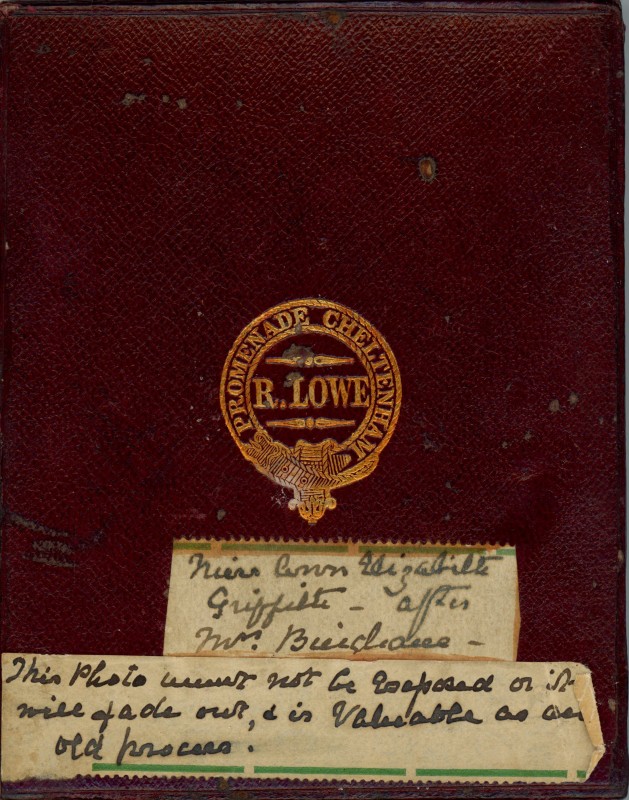 PROMENADE CHELTENHAM
R. LOWE
Miss Elizabeth
Griffith - after
Mrs. Bingham -
This Photo must not be Exposed or it
will fade out, & is Valuable as an
old process.